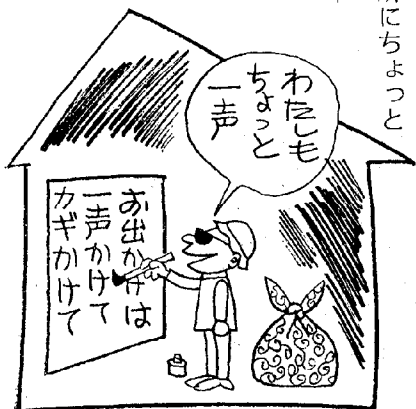 にちょっと
わたしも
ちょっと
一声
お出かけは
一声かけて
カギかけて